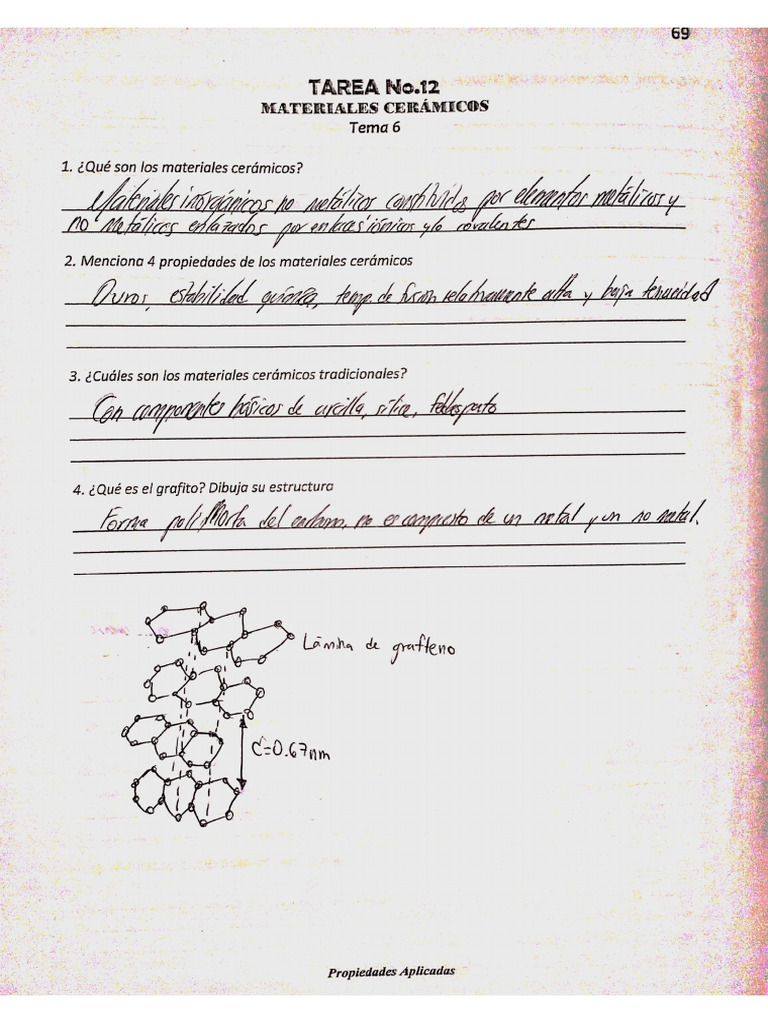 69
TAREA No.12
MATERIALES CERÁMICOS
Tema 6
1. ¿Qué son los materiales cerámicos?
Materiales inorgánicos no metálicos constituidos por elementos metálicos y
no metálicos enlazados por enlaces iónicos y/o covalentes
2. Menciona 4 propiedades de los materiales cerámicos
Duros, estabilidad química, temp. de fusión relativamente alta y baja tenacidad
3. ¿Cuáles son los materiales cerámicos tradicionales?
Con componentes básicos de arcilla, sílice, feldespato
4. ¿Qué es el grafito? Dibuja su estructura
Forma polimorfa del carbono, no es compuesto de un metal y un no metal.
Lámina de grafteno
C=0.67nm
Propiedades Aplicadas